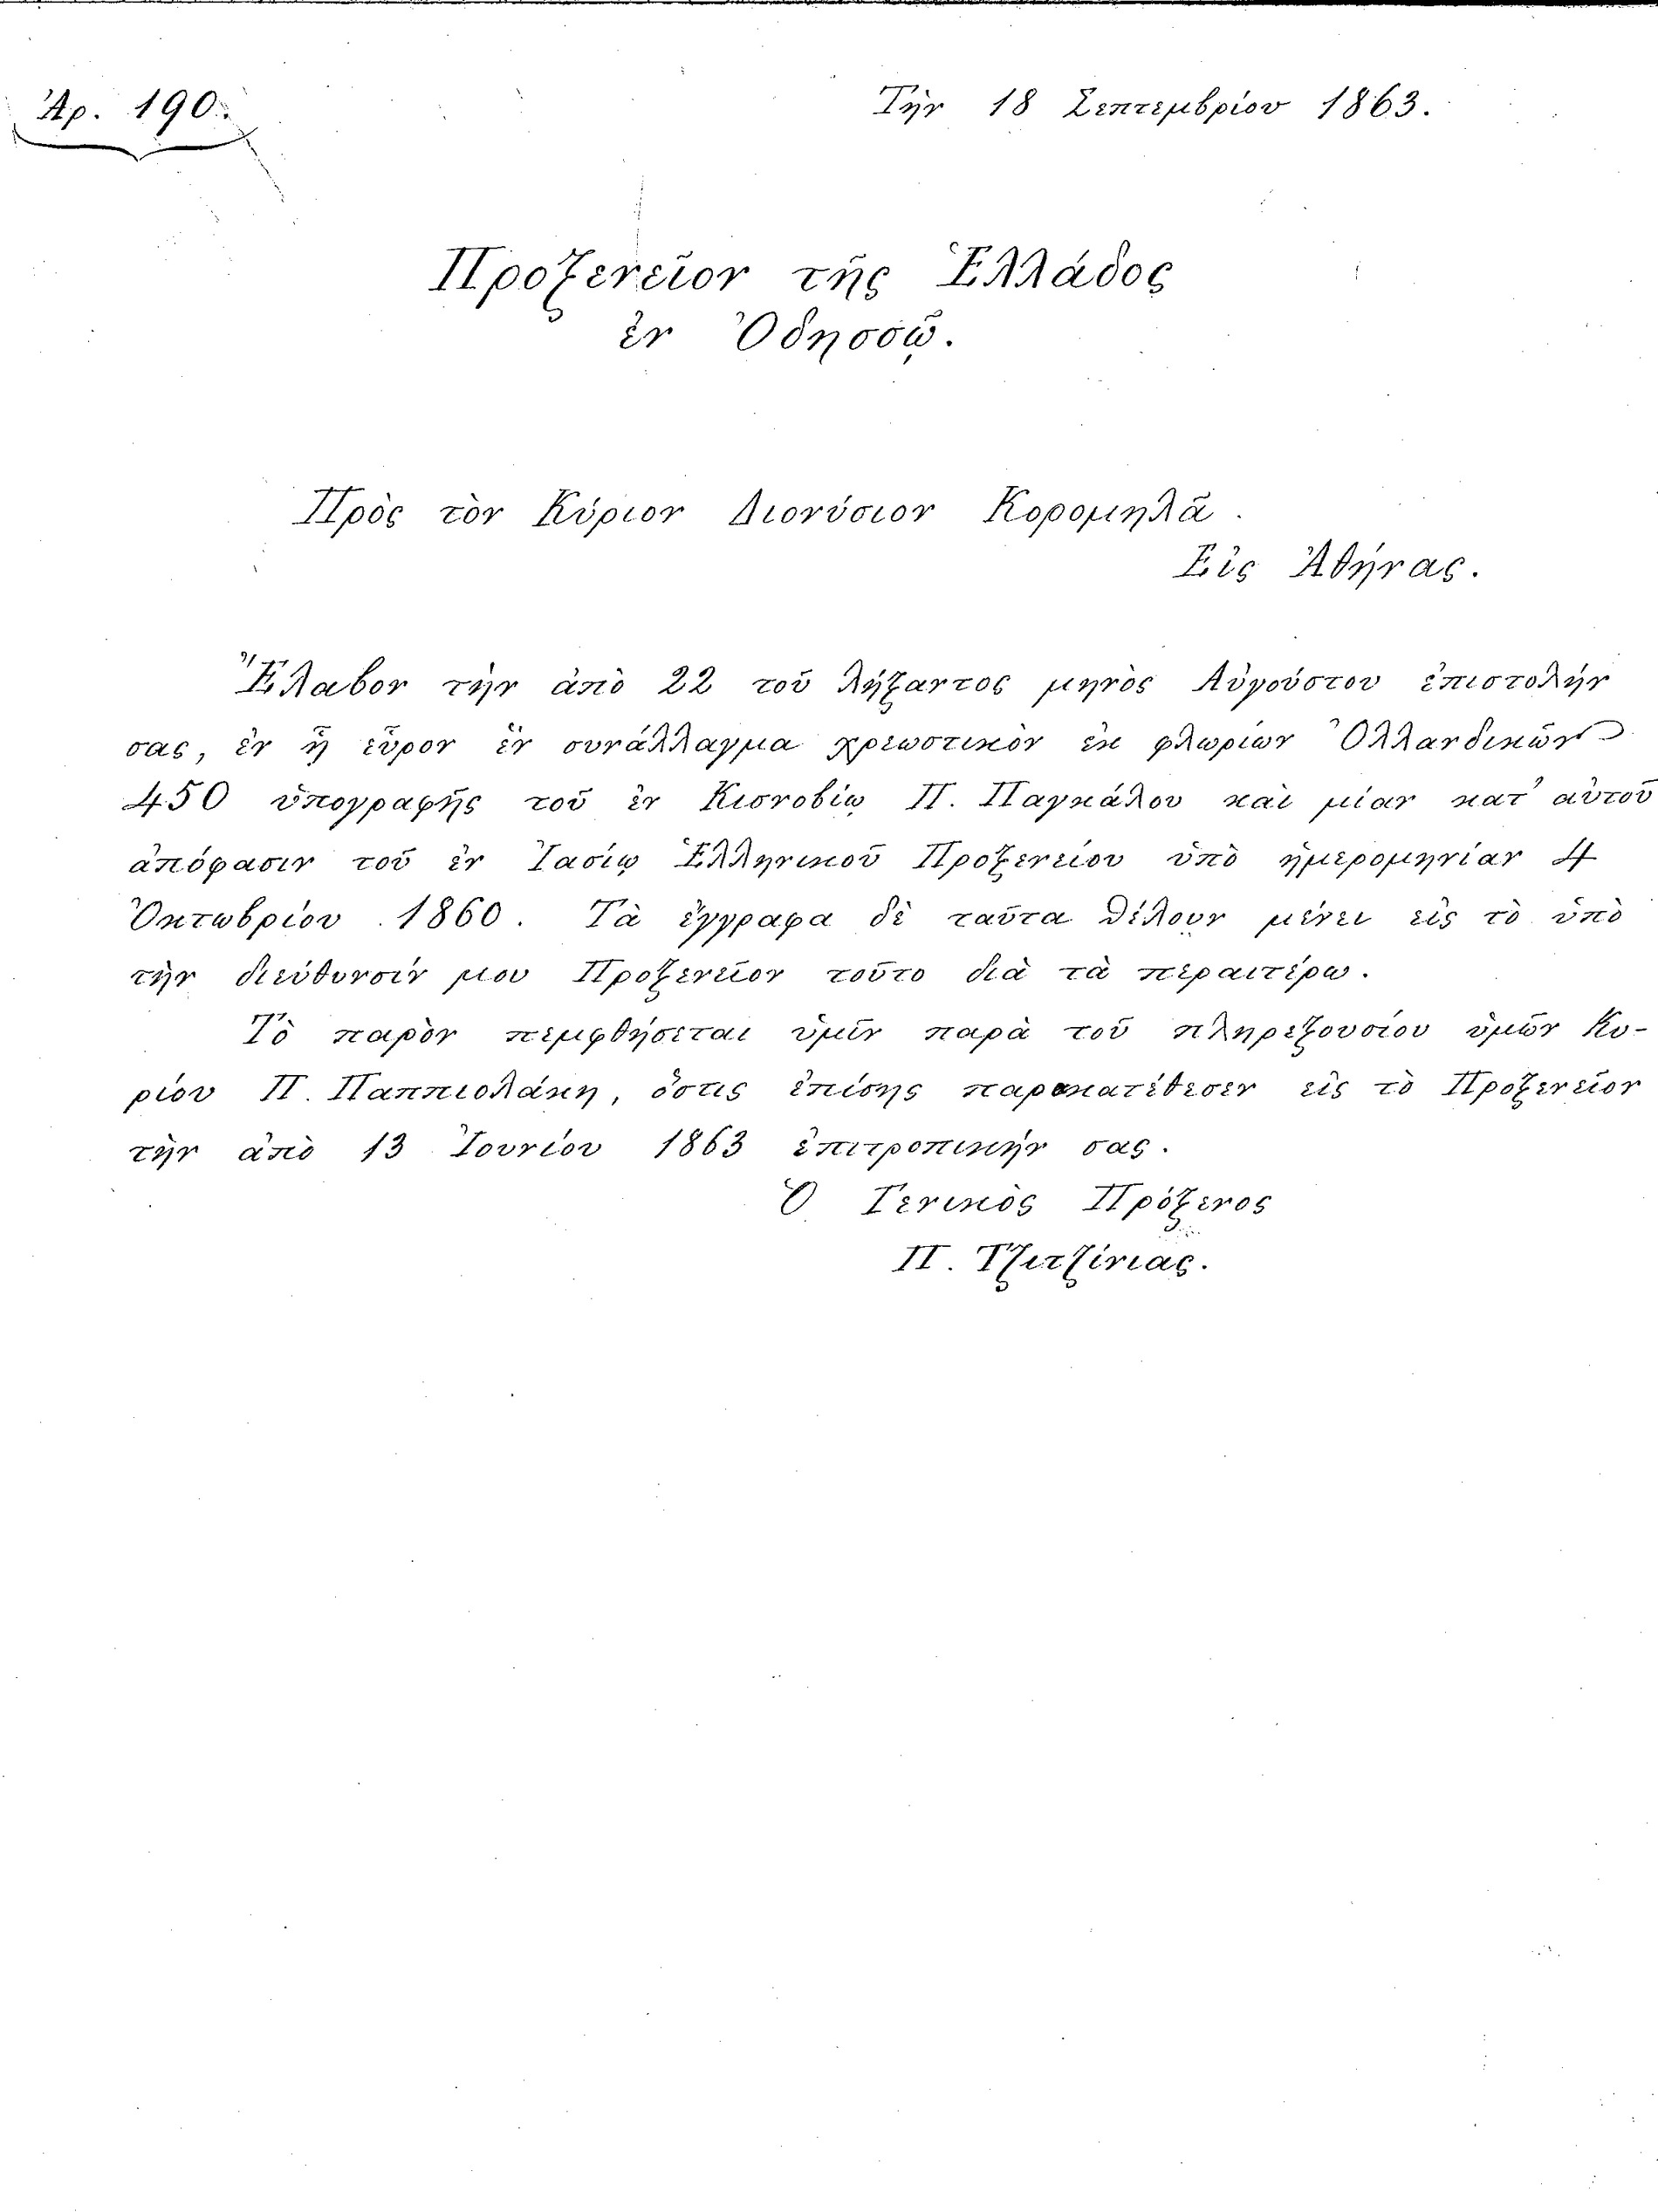 Ἀρ. 190.
Τὴν 18 Σεπτεμβρίου 1863.
Προξενεῖον τῆς Ἑλλάδος
ἐν Ὀδησσῷ.
Πρὸς τὸν Κύριον Διονύσιον Κορομηλᾶ.
Εἰς Ἀθήνας.
Ἔλαβον τὴν ἀπὸ 22 τοῦ λήξαντος μηνὸς Αὐγούστου ἐπιστολήν
σας, ἐν ᾗ εὗρον ἓν συνάλλαγμα χρεωστικὸν ἐκ φλωρίων Ὁλλανδικῶν
450 ὑπογραφῆς τοῦ ἐν Κισνοβίῳ Π. Παγκάλου καὶ μίαν κατ' αὐτοῦ
ἀπόφασιν τοῦ ἐν Ἰασίῳ Ἑλληνικοῦ Προξενείου ὑπὸ ἡμερομηνίαν 4
Ὀκτωβρίου 1860. Τὰ ἔγγραφα δὲ ταῦτα θέλουν μένει εἰς τὸ ὑπὸ
τὴν διεύθυνσίν μου Προξενεῖον τοῦτο διὰ τὰ περαιτέρω.
Τὸ παρὸν πεμφθήσεται ὑμῖν παρὰ τοῦ πληρεξουσίου ὑμῶν Κυ-
ρίου Π. Παππιολάκη, ὅστις ἐπίσης παρακατέθεσεν εἰς τὸ Προξενεῖον
τὴν ἀπὸ 13 Ἰουνίου 1863 ἐπιτροπικήν σας.
Ὁ Γενικὸς Πρόξενος
Π. Τζιτζίνιας.